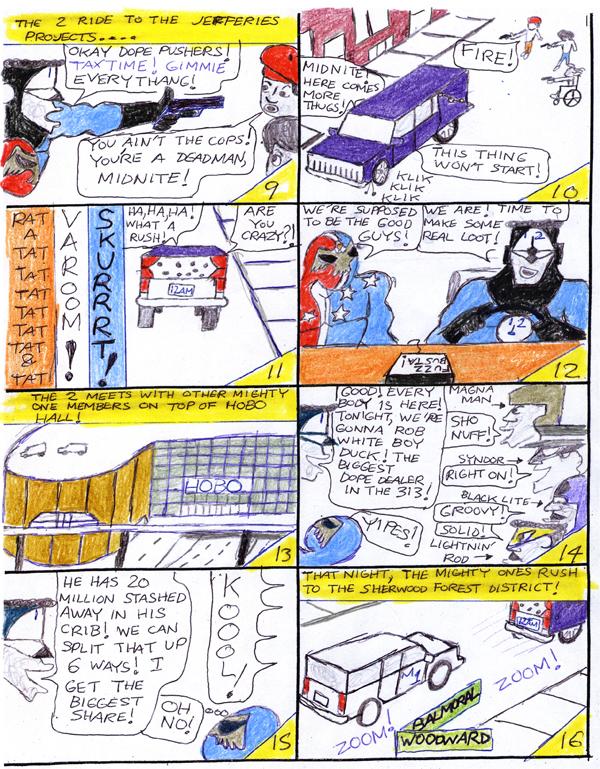 THE 2 RIDE TO THE JEFFERIES
PROJECTS....
OKAY DOPE PUSHERS!
TAX TIME! GIMMIE
EVERYTHANG!
YOU AIN'T THE COPS!
YOU'RE A DEADMAN,
MIDNITE!
9
1
FIRE!
MIDNITE!
HERE COMES
MORE
THUGS!
THIS THING
WON'T START!
KLIK
KLIK
KLIK
10
RAT
A
TAT
TAT
TAT
TAT
TAT
TAT
&
TAT!
VAROOM!
SKURRRT!
HA,HA,HA!
WHAT A
RUSH!
ARE
YOU
CRAZY?!
12AM
11
WE'RE SUPPOSED
TO BE THE GOOD
GUYS!
WE ARE! TIME TO
MAKE SOME
REAL LOOT!
12
12
FUZZ
BUSTA!
12
THE 2 MEETS WITH OTHER MIGHTY
ONE MEMBERS ON TOP OF HOBO
HALL!
HOBO
13
GOOD! EVERY
BODY IS HERE!
TONIGHT, WE'RE
GUNNA ROB
WHITE BOY
DUCK! THE
BIGGEST
DOPE DEALER
IN THE 313!
YIPES!
MAGNA
MAN
SHO
NUFF!
SYNDOR
RIGHT ON!
BLACK LITE
GROOVY!
SOLID!
LIGHTNIN'
ROD
14
HE HAS 20
MILLION STASHED
AWAY IN HIS
CRIB! WE CAN
SPLIT THAT UP
6 WAYS! I
GET THE
BIGGEST
SHARE!
KOOL!
OH
NO!
15
THAT NIGHT, THE MIGHTY ONES RUSH
TO THE SHERWOOD FOREST DISTRICT!
12AM
M1
ZOOM!
ZOOM!
BALMORAL
WOODWARD
16